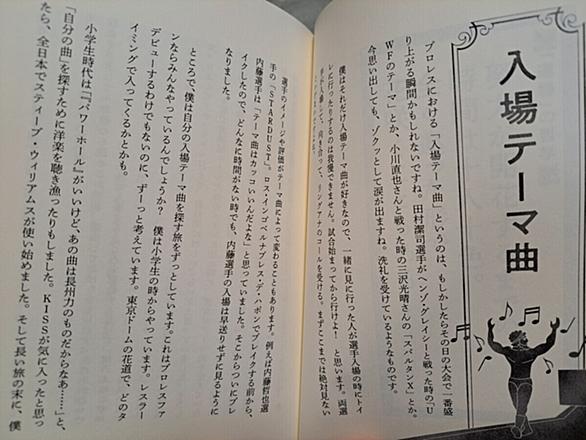 入場テーマ曲
プロレスにおける「入場テーマ曲」というのは、もしかしたらその日の大会で一番盛
り上がる瞬間かもしれないですね。田村潔司選手がヘンゾ・グレイシーと戦った時の「U
WFのテーマ」とか、小川直也さんと戦った時の三沢光晴さんの「スパルタンX」とか。
今思い出しても、ゾクッとして涙が出ますね。洗礼を受けているようなもの。
僕はそれだけ入場テーマ曲が好きなので、一緒に見に行った人が選手入場の時にトイ
レに行ったりするのは我慢できません。試合始まってから行けよ！　と思います。両選
手が入場して、向き合って、リングアナのコールを受ける。まずここまでは絶対見ない
選手のイメージや評価がテーマ曲によって変わることもあります。例えば内藤哲也選
手の「STARDUST」。ロス・インゴベルナブレス・デ・ハポンでブレイクする前から、
内藤選手は「テーマ曲はカッコいいんだよな」と思っていました。そこからついにブレ
イクしたので、どんなに時間がない時でも、内藤選手の入場は早送りせずに見るように
なりました。
ところで、僕は自分の入場テーマ曲を探す旅をずっとしています。これはプロレスファ
ンならみんなやっているんでしょうか？　僕は小学生の時からやっています。レスラー
デビューするわけでもないのに、ずーっと考えています。東京ドームの花道で、どのタ
イミングで入ってくるかとかも。
小学生時代は『「パワーホール」がいいけど、あの曲は長州力のものだからなあ……』と、
「自分の曲」を探すために洋楽を聴き漁ったりもしました。KISSが気に入ったと思っ
たら、全日本でスティーブ・ウィリアムスが使い始めました。そして長い旅の末に、僕